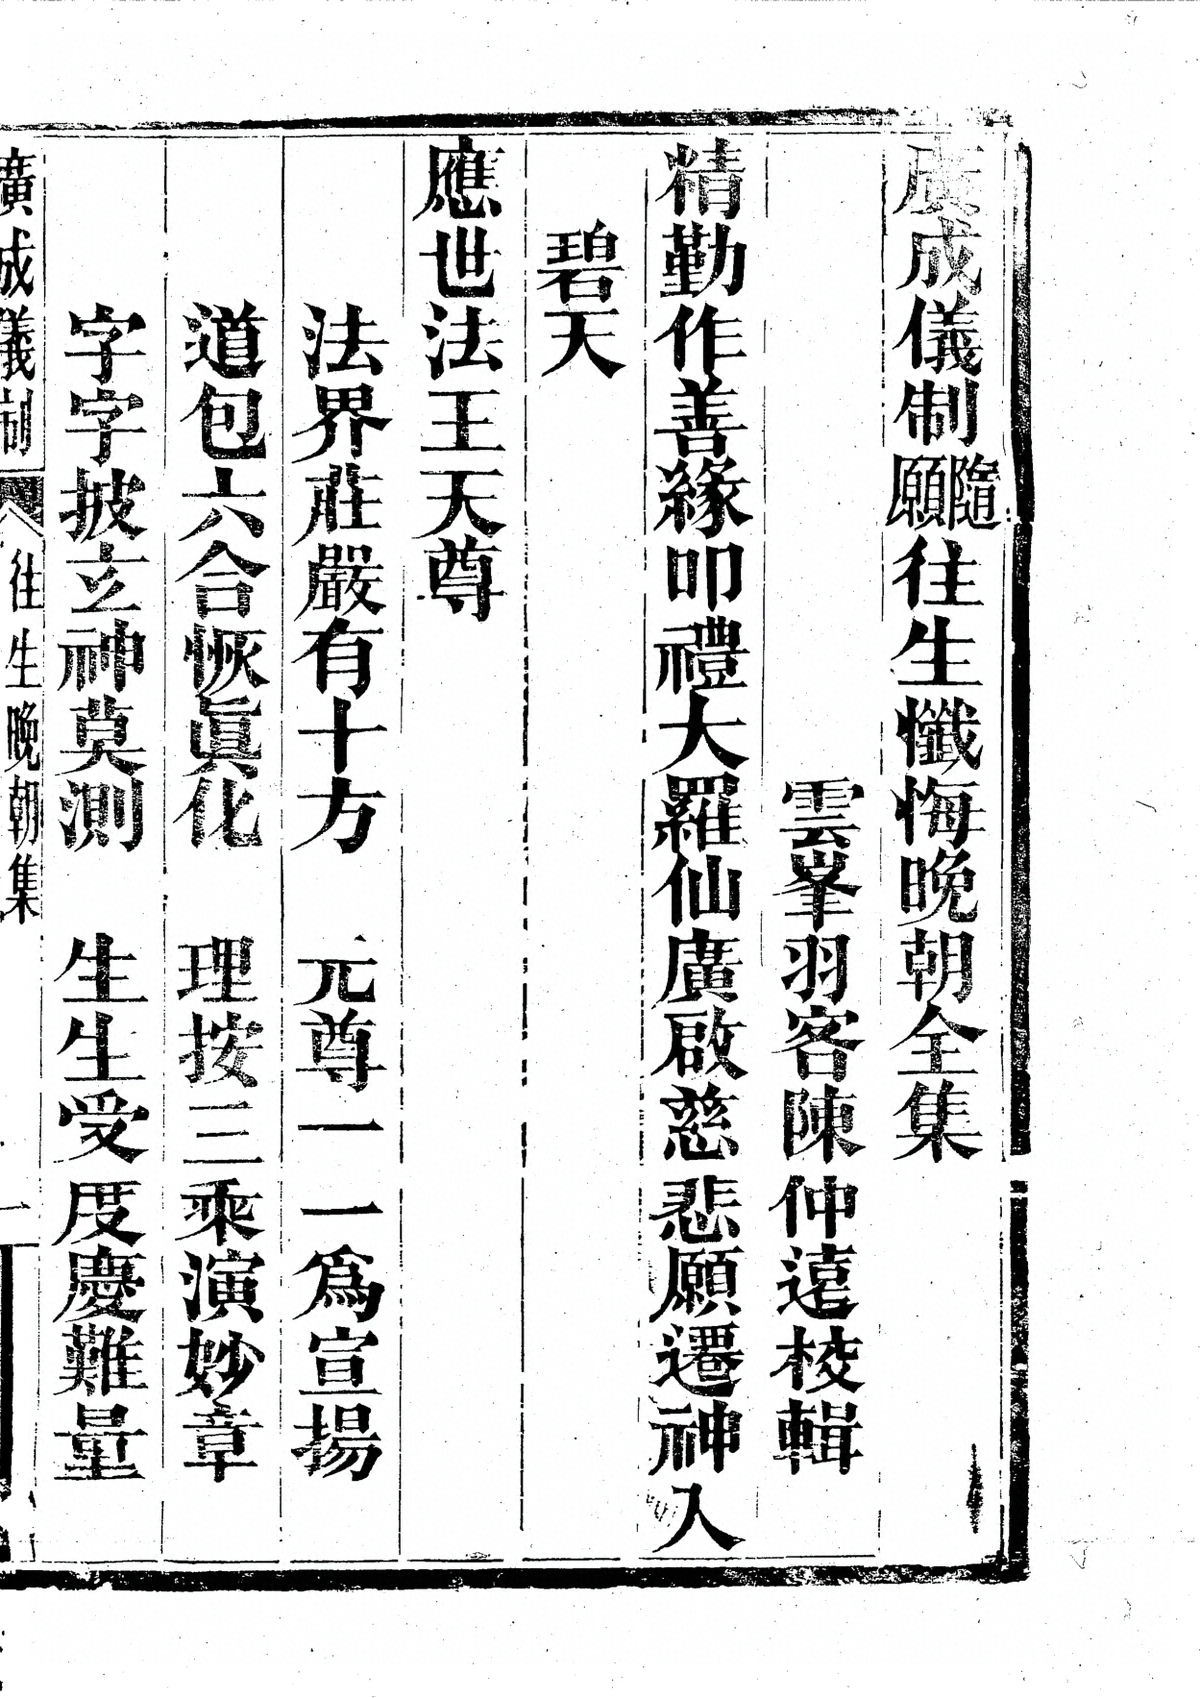 廣成儀制隨願往生懺悔晚朝全集
雲峯羽客陳仲遠校輯
精勤作善緣叩禮大羅仙廣啟慈悲願遷神入
碧天
應世法王天尊
法界莊嚴有十方　元尊一一為宣揚
道包六合恢眞化　理按三乘演妙章
字字披立神莫測　生生受度慶難量
廣成儀制　往生晚朝集　一